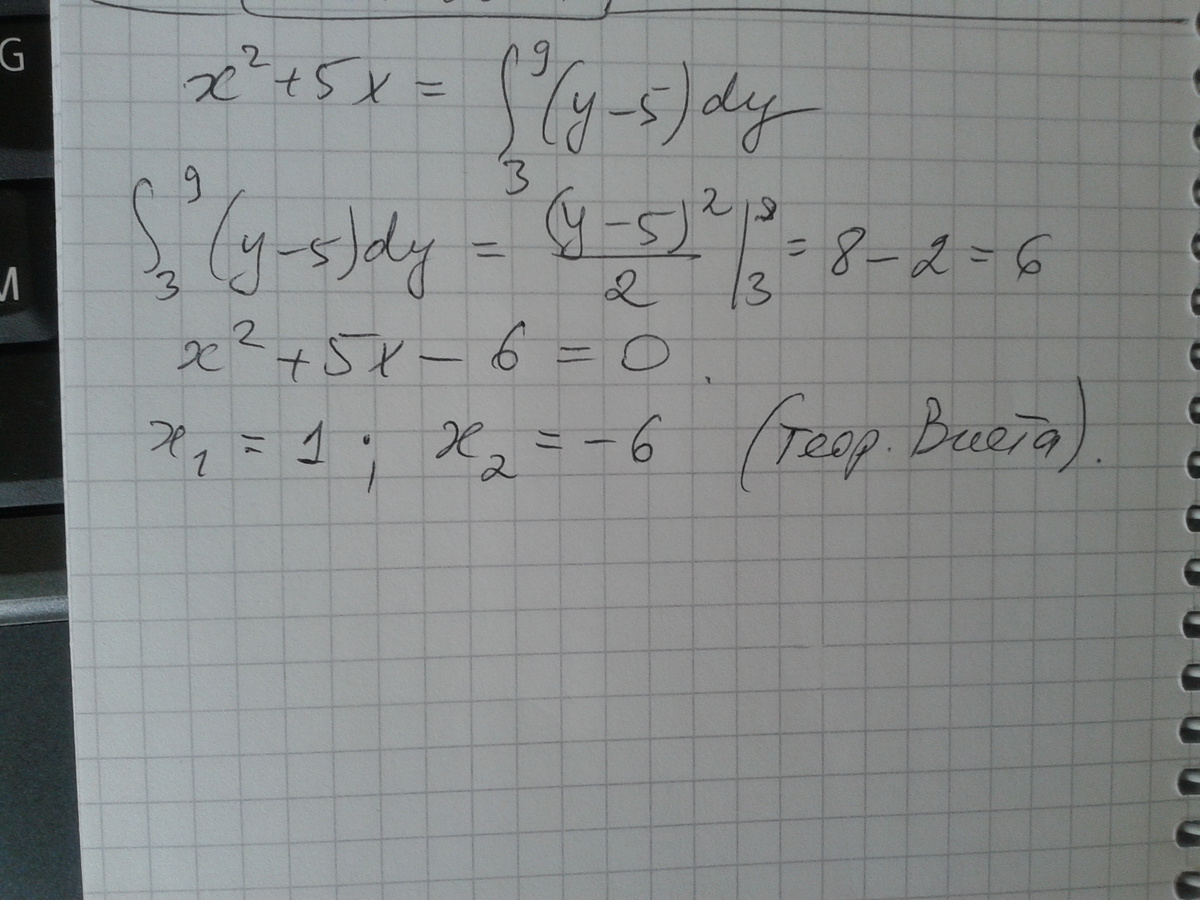 G
x² + 5x = ∫₃⁹ (y – 5) dy
M
∫₃⁹ (y – 5) dy = (y – 5)²/2 |₃⁹ = 8 – 2 = 6
x² + 5x – 6 = 0.
x₁ = 1; x₂ = –6 (теор. Виета).